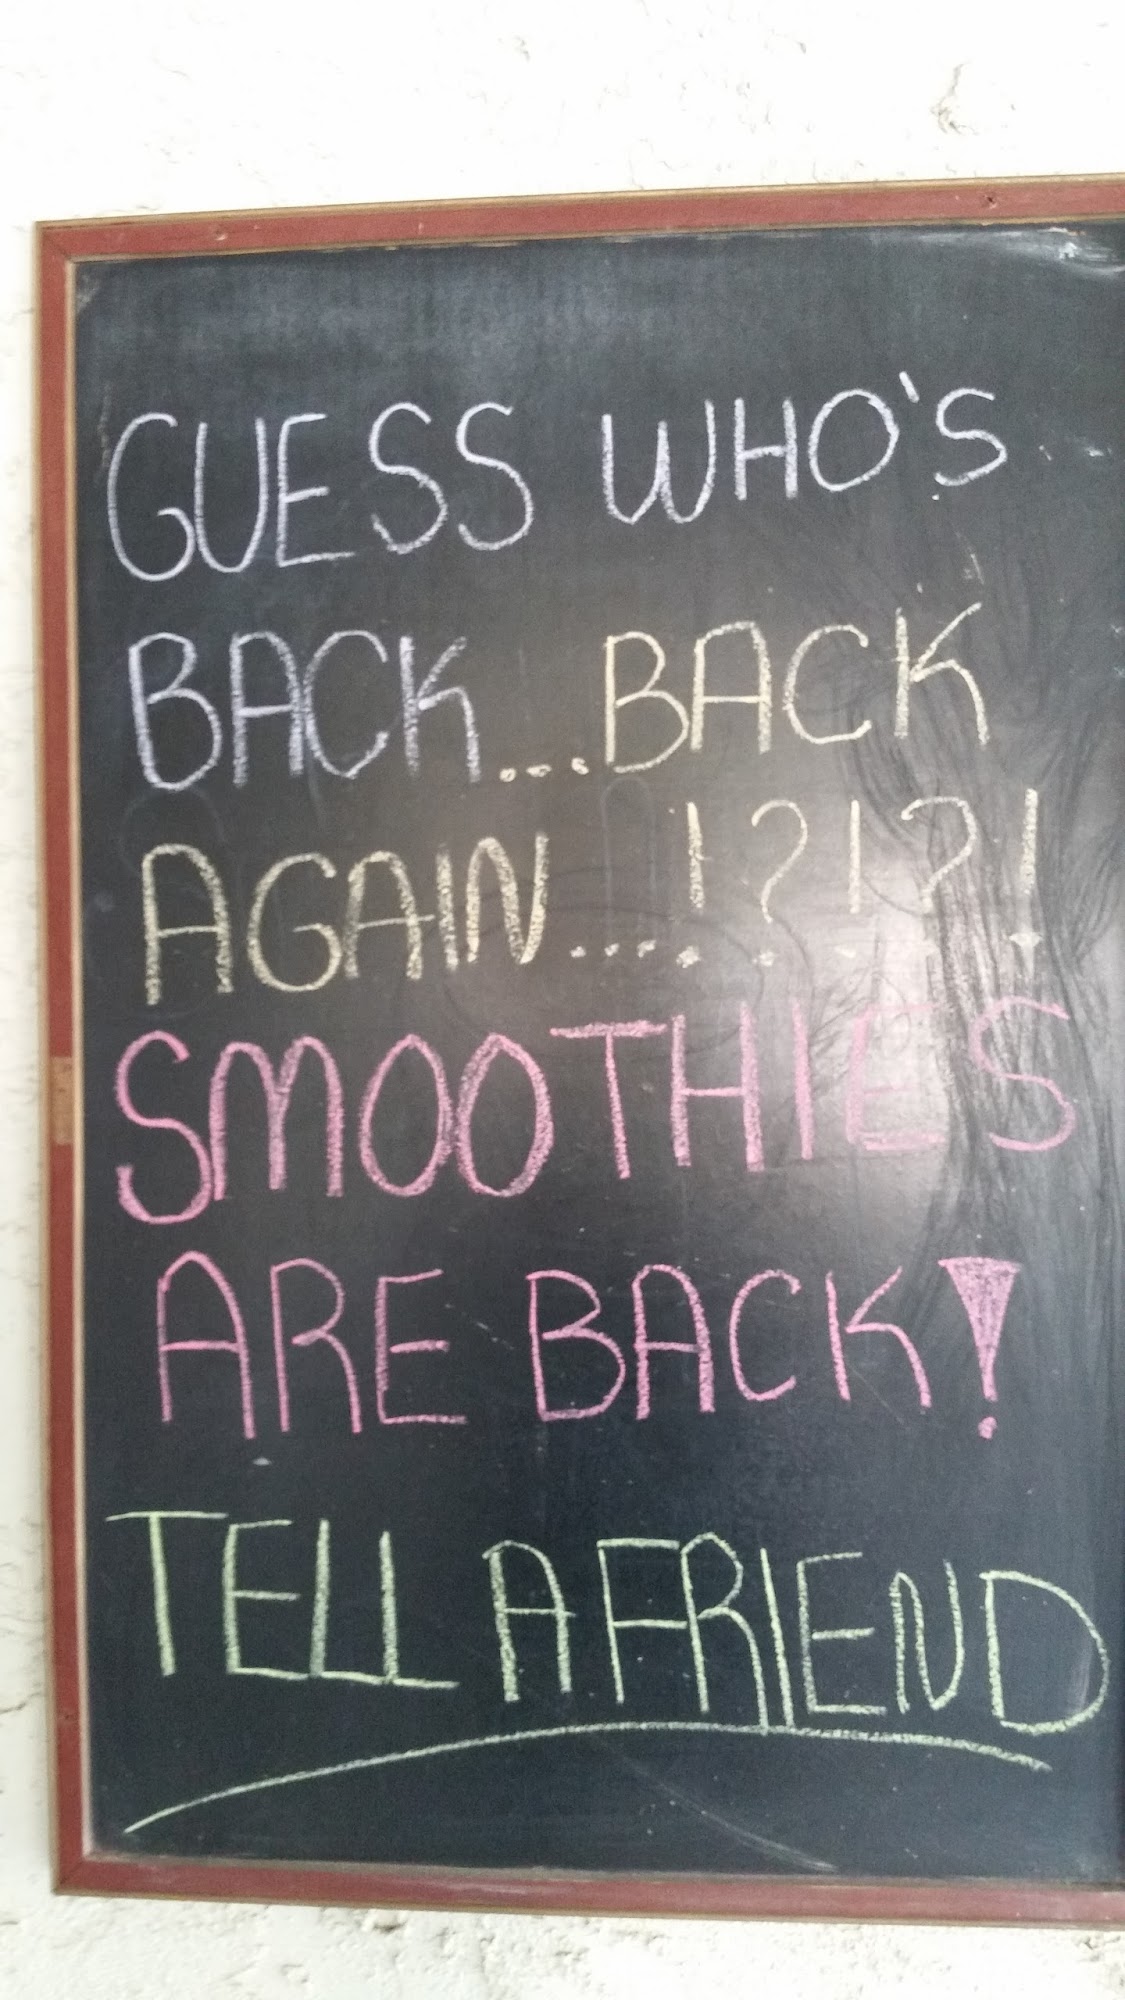 GUESS WHO'S
BACK...BACK
AGAIN....!?!?!
SMOOTHIES
ARE BACK!
TELL A FRIEND